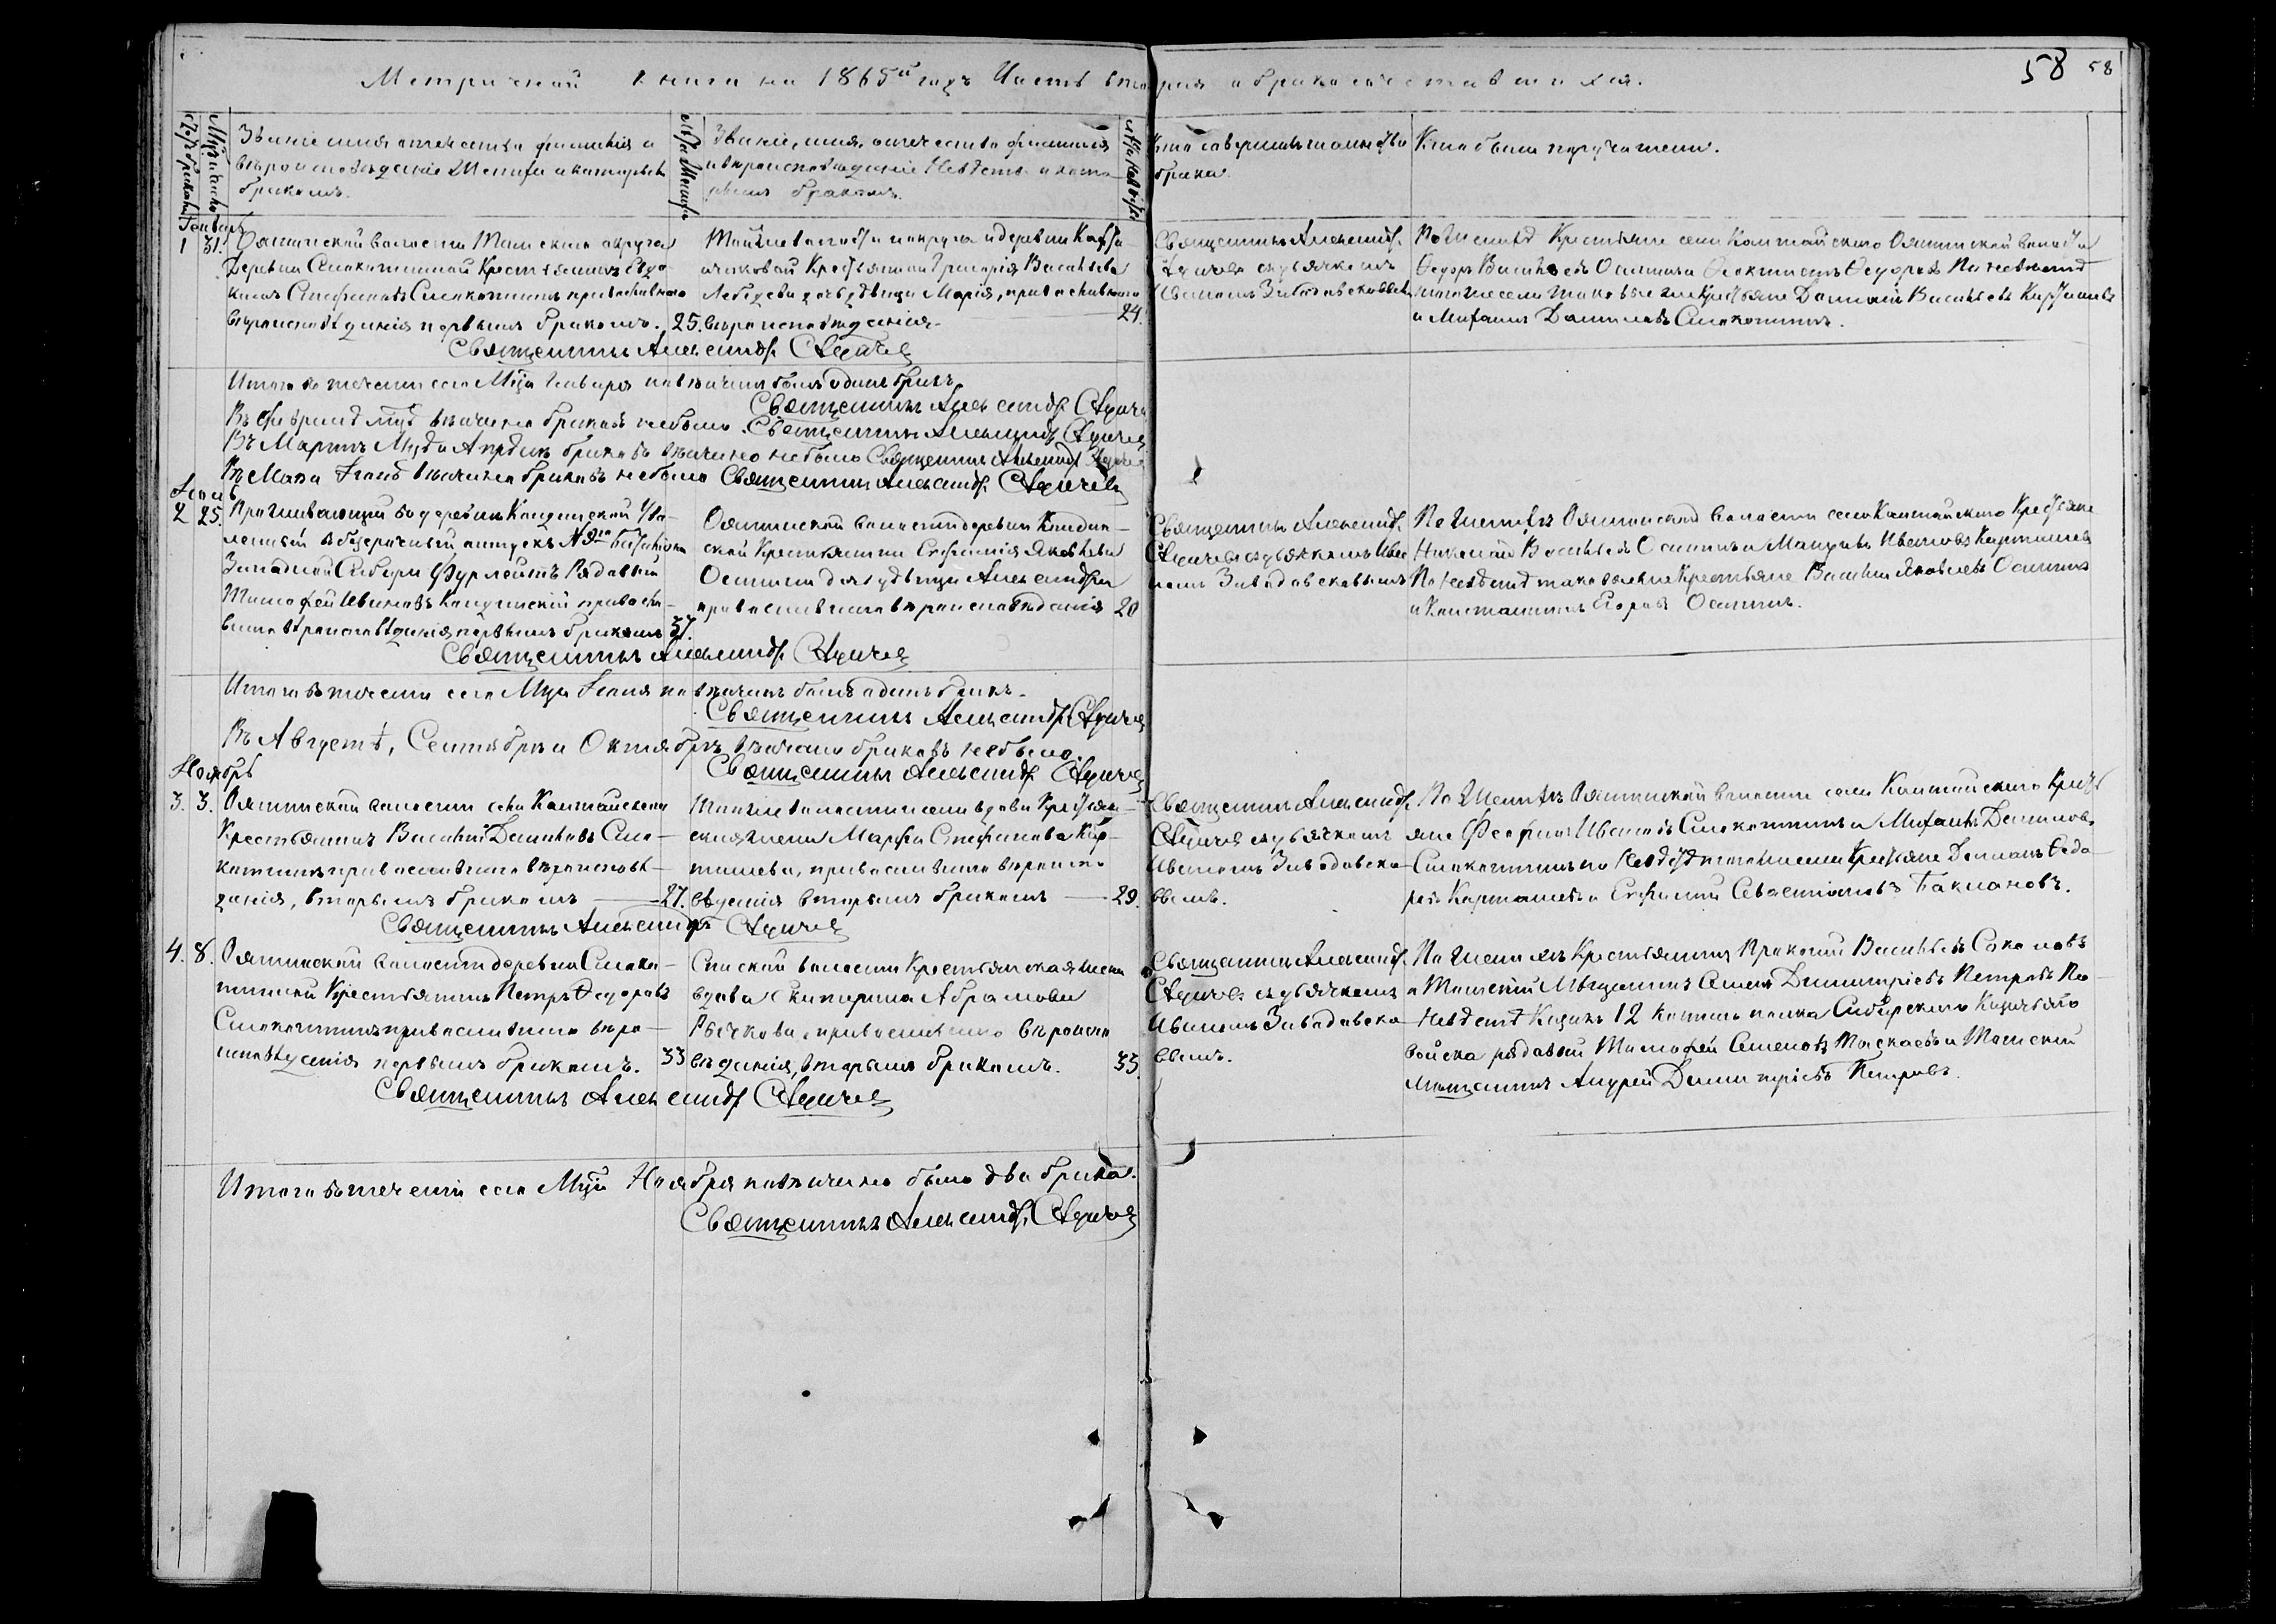 58 58
Метрической книги на 1865й годъ Часть вторая о бракосочетавшихся.
Счетъ браковъ
Мѣсяцъ и число
Званіе имя отечество фамилія и
вѣроисповѣданіе Жениха и которымъ
бракомъ.
Лѣта Жениха
Званіе, имя, отечество фамилія
и вѣроисповѣданіе Невѣсты и кото-
рымъ бракомъ.
Лѣта Невѣсты
Кто совершалъ таинство
брака.
Кто были поручители.
Генварь
1 31.
Ояшинской волости Томскаго округа
Деревни Смокотиной Крестьянинъ Евдо-
кимъ Стефановъ Смокотинъ православнаго
вѣроисповѣданія первымъ бракомъ. 25.
Тойже волости и округа и деревни
Крестьянина Григорія Васильева
Лебедева дочь дѣвица Марія, православнаго
вѣроисповѣданія. 24.
Священникъ Александръ
съ дьячкомъ
Иваномъ Завадовскимъ
По Женихѣ Крестьяне села Колтайскаго Ояшинской волости
Ѳедоръ Васильевъ Осипинъ Ѳеоктистъ Ѳедоровъ По невѣстѣ
тогоже села таковые же Крестьяне Василье­въ Карташевъ
и Михаилъ Даниловъ Смокотинъ.
Священникъ Александръ
Итого въ теченіи сего Мѣсяца Генваря повѣнчанъ былъ одинъ бракъ.
Священникъ Александръ
Въ Февралѣ мцѣ вѣнчано браковъ небыло. Священникъ Александръ
Въ Мартѣ Мцѣ и Апрѣлѣ браковъ вѣнчано небыло Священникъ Александръ
Въ Маѣ и Іюнѣ вѣнчано браковъ небыло Священникъ Александръ
Іюль
2 25.
Проживающій въ деревнѣ Кандинской Уво-
ленный въ безсрочный отпускъ баталіона
Западной Сибири Фурлейтъ Рядовый
Тимофей Ивановъ Кандинскій правосла-
внаго вѣроисповѣданія первымъ бракомъ 37.
Ояшинской волости деревни Кандин-
ской Крестьянина Евфимія Яковлева
Осипина дочь дѣвица Александра
православнаго вѣроисповѣданія 20
Священникъ Александръ
съ дьячкомъ Ива-
номъ Завадовскимъ
По Женихѣ Ояшинской волости села Колтайскаго Крестьяне
Николай Васильевъ Осипинъ и Ивановъ Карташевъ
По невѣстѣ таковые же Крестьяне Василій Яковлевъ Осипинъ
и Константинъ Егоровъ Осипинъ.
Священникъ Александръ
Итого въ теченіи сего Мца Іюля повѣнчанъ былъ одинъ бракъ.
Священникъ Александръ
Въ Августѣ, Сентябрѣ и Октябрѣ вѣнчано браковъ небыло.
Священникъ Александръ
Ноябрь
3. 3.
Ояшинской волости села Колтайскаго
Крестьянинъ Василій Даниловъ Смо-
котинъ православнаго вѣроисповѣ-
данія, вторымъ бракомъ 27.
Тойже волости и села вдова Крестьян-
ская жена Марфа Стефанова Кар-
ташева, православнаго вѣроиспо-
вѣданія вторымъ бракомъ 29.
Священникъ Александръ
съ дьячкомъ
Иваномъ Завадовски-
вымъ.
По Женихѣ Ояшинской волости села Колтайскаго Кресть-
яне Ивановъ Смокотинъ и Михаилъ Даниловъ
Смокотинъ по невѣстѣ тогоже села Крестьяне Ѳедо-
ровъ Карташевъ и Евфимій Севастіановъ Баклановъ.
Священникъ Александръ
4. 8.
Ояшинской волости деревни Смоко-
тиной Крестьянинъ Петръ Ѳедоровъ
Смокотинъ православнаго вѣро-
исповѣданія первымъ бракомъ. 33
Спаской волости Крестьянская жена
вдова Екатерина Абрамова
Рычкова, православнаго вѣроиспо-
вѣданія, вторымъ бракомъ. 33.
Священникъ Александръ
съ дьячкомъ
Иваномъ Завадовски-
вымъ.
По Женихѣ Крестьянинъ Прокопій Васильевъ Соколовъ
и Томскій Мѣщанинъ Семенъ Димитріевъ Петровъ По
Невѣстѣ Казакъ 12 коннаго полка Сибирскаго Казачьяго
войска рядовый Тимофей Семеновъ и Томскій
Мѣщанинъ Андрей Димитріевъ Петровъ.
Священникъ Александръ
Итого въ теченіи сего Мца Ноября повѣнчано было два брака.
Священникъ Александръ